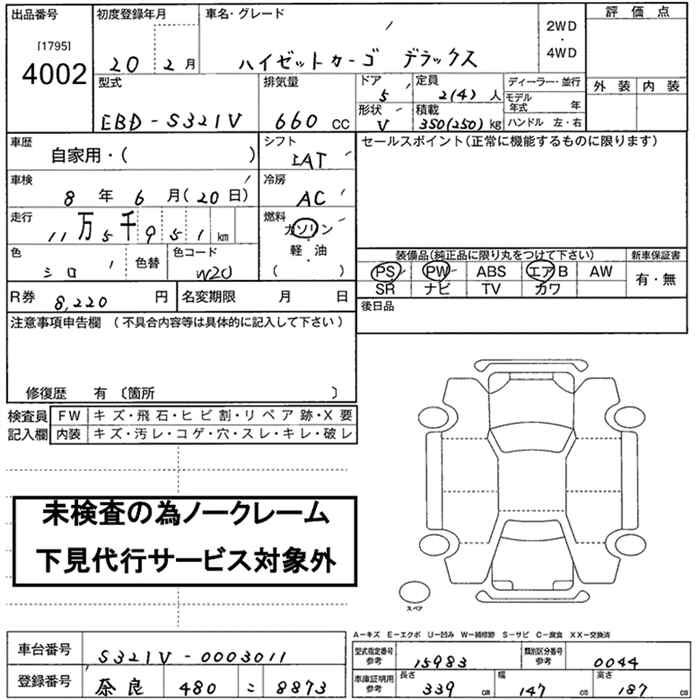 出品番号 初度登録年月 車名・グレード 評価点
[1795] 2WD
4002 20 2月 ハイゼットカーゴ デラックス ・
4WD
型式 排気量 ドア 定員 ディーラー・並行 外装 内装
5 2(4)人 モデル年式 年
EBD-S321V 660 CC 形状 積載 ハンドル 左・右
V 350(250)kg
車歴 自家用・( ) シフト セールスポイント(正常に機能するものに限ります)
IAT
車検 8年 6月(20日) 冷房
AC
走行 11万5千951km 燃料
ガソリン
軽・油
・
( )
色 シロ 色替 色コード W20
装備品(純正品に限り丸をつけて下さい) 新車保証書
PS PW ABS エアB AW 有・無
SR ナビ TV カワ
R券 8,220円 名変期限 月 日 後日品
注意事項申告欄 (不具合内容等は具体的に記入して下さい)
修復歴 有 〔箇所 〕
検査員 FW キズ・飛石・ヒビ割・リペア跡・X要
記入欄 内装 キズ・汚レ・コゲ・穴・スレ・キレ・破レ
未検査の為ノークレーム
下見代行サービス対象外
スペア
A−キズ E−エクボ U−凹み W−補修跡 S−サビ C−腐食 XX−交換済
車台番号 S321V-0003011 型式指定番号 参考 15983 類別区分番号 参考 0044
登録番号 奈良 480 こ 8873 車庫証明用 参考 長さ 339cm 幅 147cm 高さ 187cm